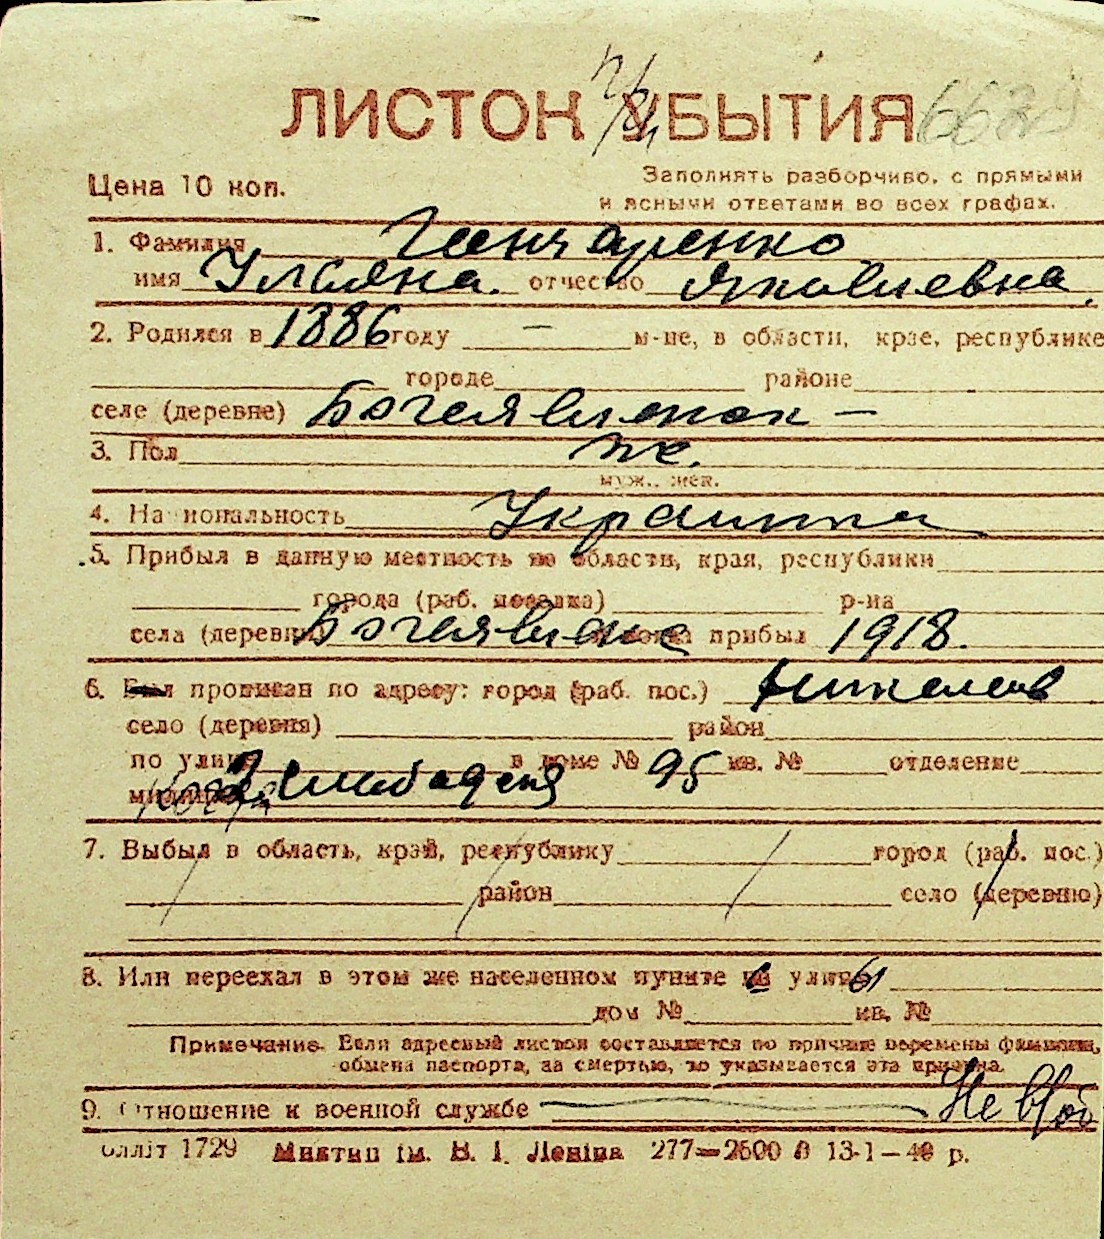 ЛИСТОК УБЫТИЯ
Цена 10 коп.
Заполнять разборчиво, с прямыми
и ясными ответами во всех графах.
1. Фамилия Ганчаренко
имя Ульяна. отчество Яковлевна.
2. Родился в 1886 году — м-це, в области, крае, республике
городе районе
селе (деревне) Богоявленск —
3. Пол ж.
муж., жен.
4. Национальность Украинка
5. Прибыл в данную местность из области, края, республики
города (раб. поселка) р-на
села (деревни) прибыл 1918.
6. Был прописан по адресу: город (раб. пос.) Николаев
село (деревня) район
по улице в доме № 95 кв. № отделение
милиции Слободская
7. Выбыл в область, край, республику город (раб. пос.)
район село (деревню)
8. Или переехал в этом же населенном пункте улицы
дом № кв. №
Примечание. Если адресный листок составляется по причине перемены фамилии,
обмена паспорта, за смертью, то указывается эта причина.
9. Отношение к военной службе Не в/об
1729 Миктип ім. В. І. Леніна 277—2500 13-1—40 р.